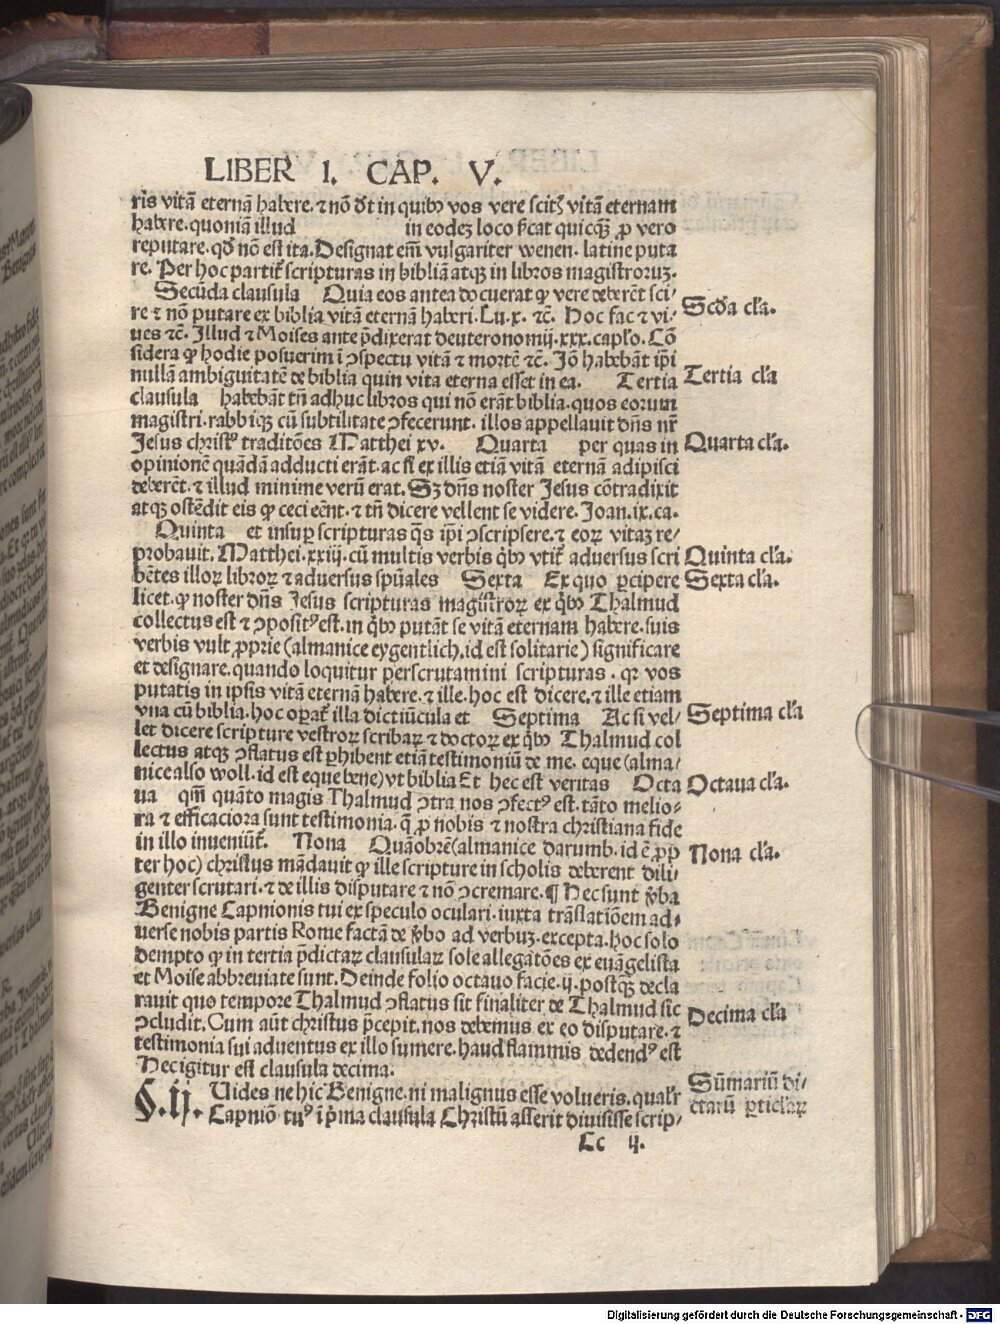 LIBER I. CAP. V.
ris vitā eternā habere. ⁊ nō dt in quibꝰ vos vere scitꝭ vitā eternam
habere. quoniā illud in eodeꝫ loco ficat quicqꝫ ꝓ vero
reputare. qd nō est ita. Designat em vulgariter wenen. latine puta
re. Per hoc partit scripturas in bibliā atqꝫ in libros magistroruꝫ.
Secūda clausula Quia eos antea docuerat ꝙ vere deberēt sci/
re ⁊ nō putare ex biblia vitā eternā haberi. Lu. x. ⁊c. Hoc fac ⁊ vi/
ues ⁊c. Illud ⁊ Moises ante p̄dixerat deuteronomij. xxx. caplo. Cō
sidera ꝙ hodie posuerim ī ꝯspectu vitā ⁊ mortē ⁊c. Jō habebāt ip̄i
nullā ambiguitatē de biblia quin vita eterna esset in ea. Tertia
clausula habebāt tn̄ adhuc libros qui nō erāt biblia. quos eorum
magistri. rabbiqꝫ cū subtilitate ꝯfecerunt. illos appellauit dn̄s nr̄
Jesus christꝰ traditōes Matthei xv. Quarta per quas in
opinionē quādā adducti erāt. ac si ex illis etiā vitā eternā adipisci
deberēt. ⁊ illud minime verū erat. Sꝫ dn̄s noster Jesus cōtradixit
atqꝫ ostēdit eis ꝙ ceci eēnt. ⁊ tn̄ dicere vellent se videre. Joan. ix. ca.
Quinta et insuꝑ scripturas q̄s ip̄i ꝯscripsere. ⁊ eoꝝ vitaꝫ re/
probauit. Matthei. xxiij. cū multis verbis qb̄ꝰ vtit̄ aduersus scri
bētes illoꝝ libroꝝ ⁊ aduersus spūales Sexta Ex quo ꝑcipere
licet. ꝙ noster dn̄s Jesus scripturas magistroꝝ ex qb̄ꝰ Thalmud
collectus est ⁊ ꝯpositꝰ est. in qb̄ꝰ putāt se vitā eternam habere. suis
verbis vult ꝓprie (almanice eygentlich. id est solitarie) significare
et designare. quando loquitur perscrutamini scripturas. qꝛ vos
putatis in ipsis vitā eternā habere. ⁊ ille. hoc est dicere. ⁊ ille etiam
vna cū biblia. hoc oꝑat̄ illa dictiūcula et Septima Ac si vel/
let dicere scripture vestroꝝ scribaꝝ ⁊ doctoꝝ ex qb̄ꝰ Thalmud col
lectus atqꝫ ꝯflatus est ꝑhibent etiā testimoniū de me. eque (alma/
nice also woll. id est eque bene) vt biblia Et hec est veritas Octa
ua qm̄ quāto magis Thalmud ꝯtra nos ꝯfectꝰ est. tāto melio/
ra ⁊ efficaciora sunt testimonia. q̄ ꝓ nobis ⁊ nostra christiana fide
in illo inueniūt̄. Nona Quāobrē (almanice darumb. id ē ꝓp
ter hoc) christus mādauit ꝙ ille scripture in scholis deberent dili/
genter scrutari. ⁊ de illis disputare ⁊ nō ꝯcremare. ¶ Hec sunt v̄ba
Benigne Capnionis tui ex speculo oculari. iuxta trāslatiōem ad/
uerse nobis partis Rome factā de v̄bo ad verbuꝫ. excepta. hoc solo
dempto ꝙ in tertia p̄dictaꝝ clausulaꝝ sole allegatōes ex euāgelista
et Moise abbreuiate sunt. Deinde folio octauo facie. ij. postqꝫ decla
rauit quo tempore Thalmud ꝯflatus sit finaliter de Thalmud sic
ꝯcludit. Cum aūt christus p̄cepit. nos debemus ex eo disputare. ⁊
testimonia sui aduentus ex illo sumere. haud flammis dedendꝰ est
Hec igitur est clausula decima.
§. ij. Uides ne hic Benigne. ni malignus esse volueris. qualr̄
Capniō tuꝰ ī p̄ma clausula Christū asserit diuisisse scrip/
Cc ij.
Scd̄a cl̄a.
Tertia cl̄a
Quarta cl̄a.
Quinta cl̄a.
Sexta cl̄a.
Septima cl̄a
Octaua cl̄a.
Nona cl̄a.
Decima cl̄a
Sūmariū di/
ctarū ꝑticlaꝝ
Digitalisierung gefördert durch die Deutsche Forschungsgemeinschaft - DFG